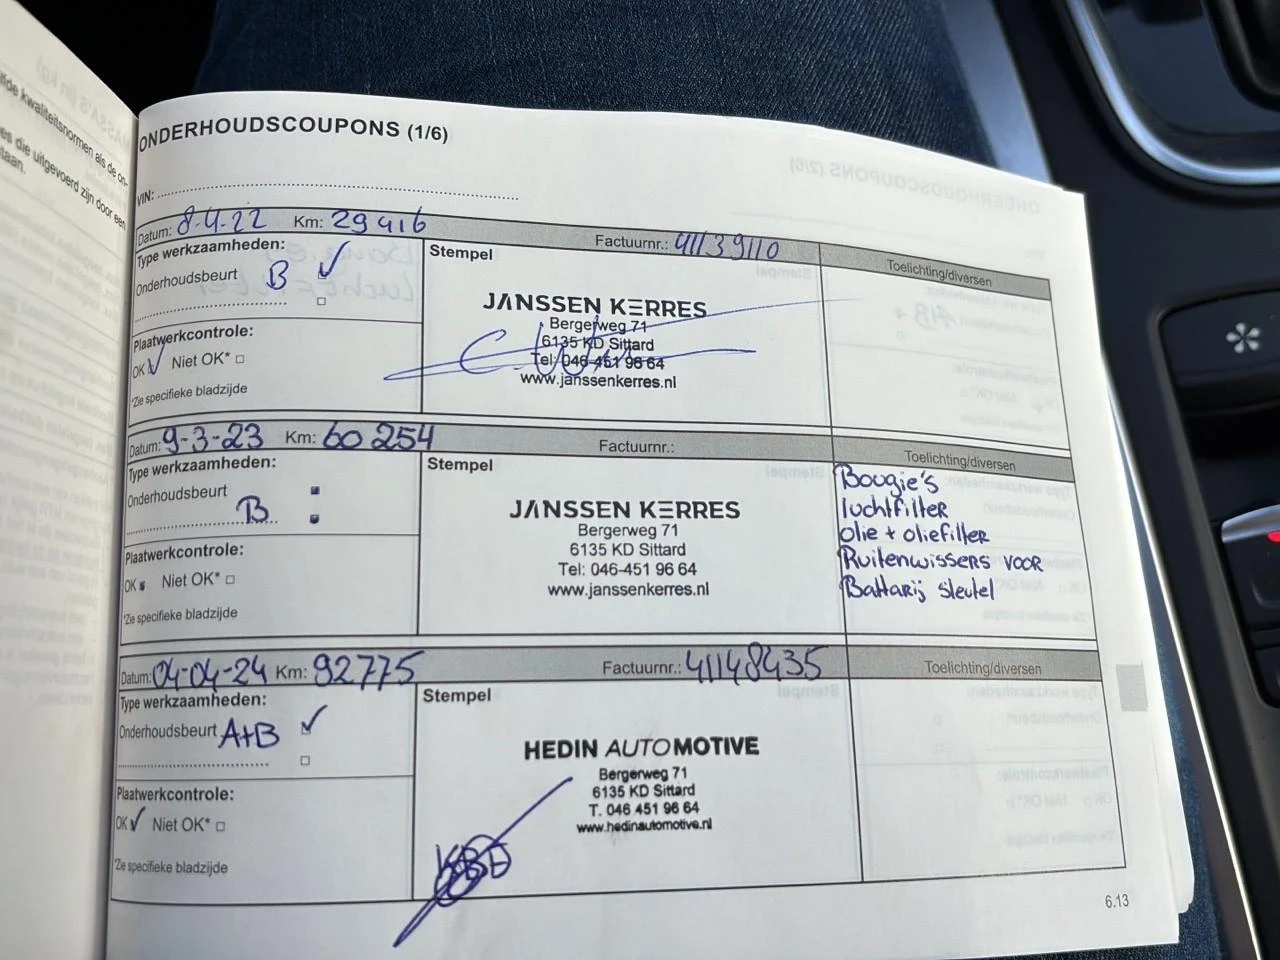 ONDERHOUDSCOUPONS (1/6)
VIN:
Datum: 8-4-22 Km: 29416 Factuurnr.: 41139110
Toelichting/diversen
Type werkzaamheden:
Onderhoudsbeurt B
Stempel
JANSSEN KERRES
Bergerweg 71
6135 KD Sittard
Tel: 046-451 96 64
www.janssenkerres.nl
Plaatwerkcontrole:
OK Niet OK*
*Zie specifieke bladzijde
Datum: 9-3-23 Km: 60 254 Factuurnr.:
Toelichting/diversen
Type werkzaamheden:
Onderhoudsbeurt
B
Stempel
JANSSEN KERRES
Bergerweg 71
6135 KD Sittard
Tel: 046-451 96 64
www.janssenkerres.nl
Bougie's
luchtfilter
olie + oliefilter
Ruitenwissers voor
Battarij sleutel
Plaatwerkcontrole:
OK Niet OK*
*Zie specifieke bladzijde
Datum: 04-04-24 Km: 92775 Factuurnr.: 41148435
Toelichting/diversen
Type werkzaamheden:
Onderhoudsbeurt A+B
Stempel
HEDIN AUTOMOTIVE
Bergerweg 71
6135 KD Sittard
T. 046 451 96 64
www.hedinautomotive.nl
Plaatwerkcontrole:
OK Niet OK*
*Zie specifieke bladzijde
6.13